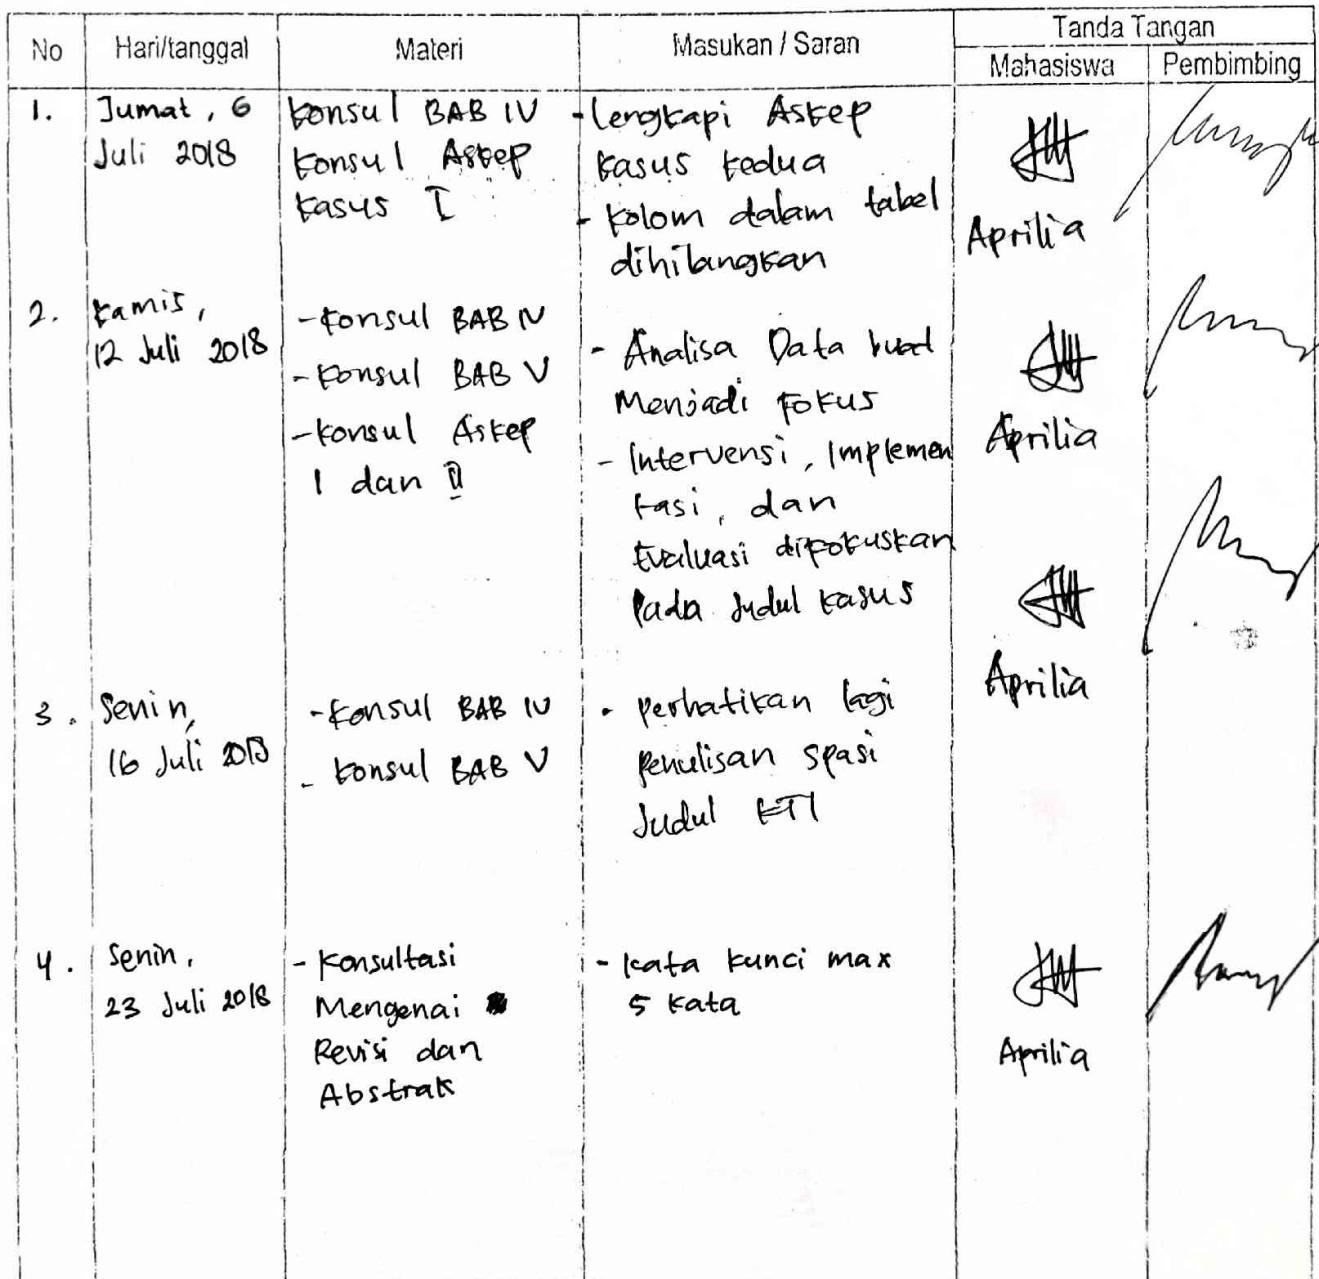 No Hari/tanggal Materi Masukan / Saran Tanda Tangan
Mahasiswa Pembimbing
1. Jumat, 6 Juli 2018
konsul BAB IV
konsul Askep
kasus I
- Lengkapi Askep
kasus kedua
- kolom dalam tabel
dihilangkan
Aprilia
2. kamis,
12 Juli 2018
- konsul BAB IV
- konsul BAB V
- konsul Askep
I dan II
- Analisa Data buat
Menjadi fokus
- Intervensi, Implemen
tasi, dan
Evaluasi difokuskan
Pada Judul kasus
Aprilia
3. Senin,
16 Juli 2018
- konsul BAB IV
- konsul BAB V
- perhatikan lagi
penulisan spasi
Judul KTI
Aprilia
4. Senin,
23 Juli 2018
- konsultasi
Mengenai
Revisi dan
Abstrak
- kata kunci max
5 kata
Aprilia